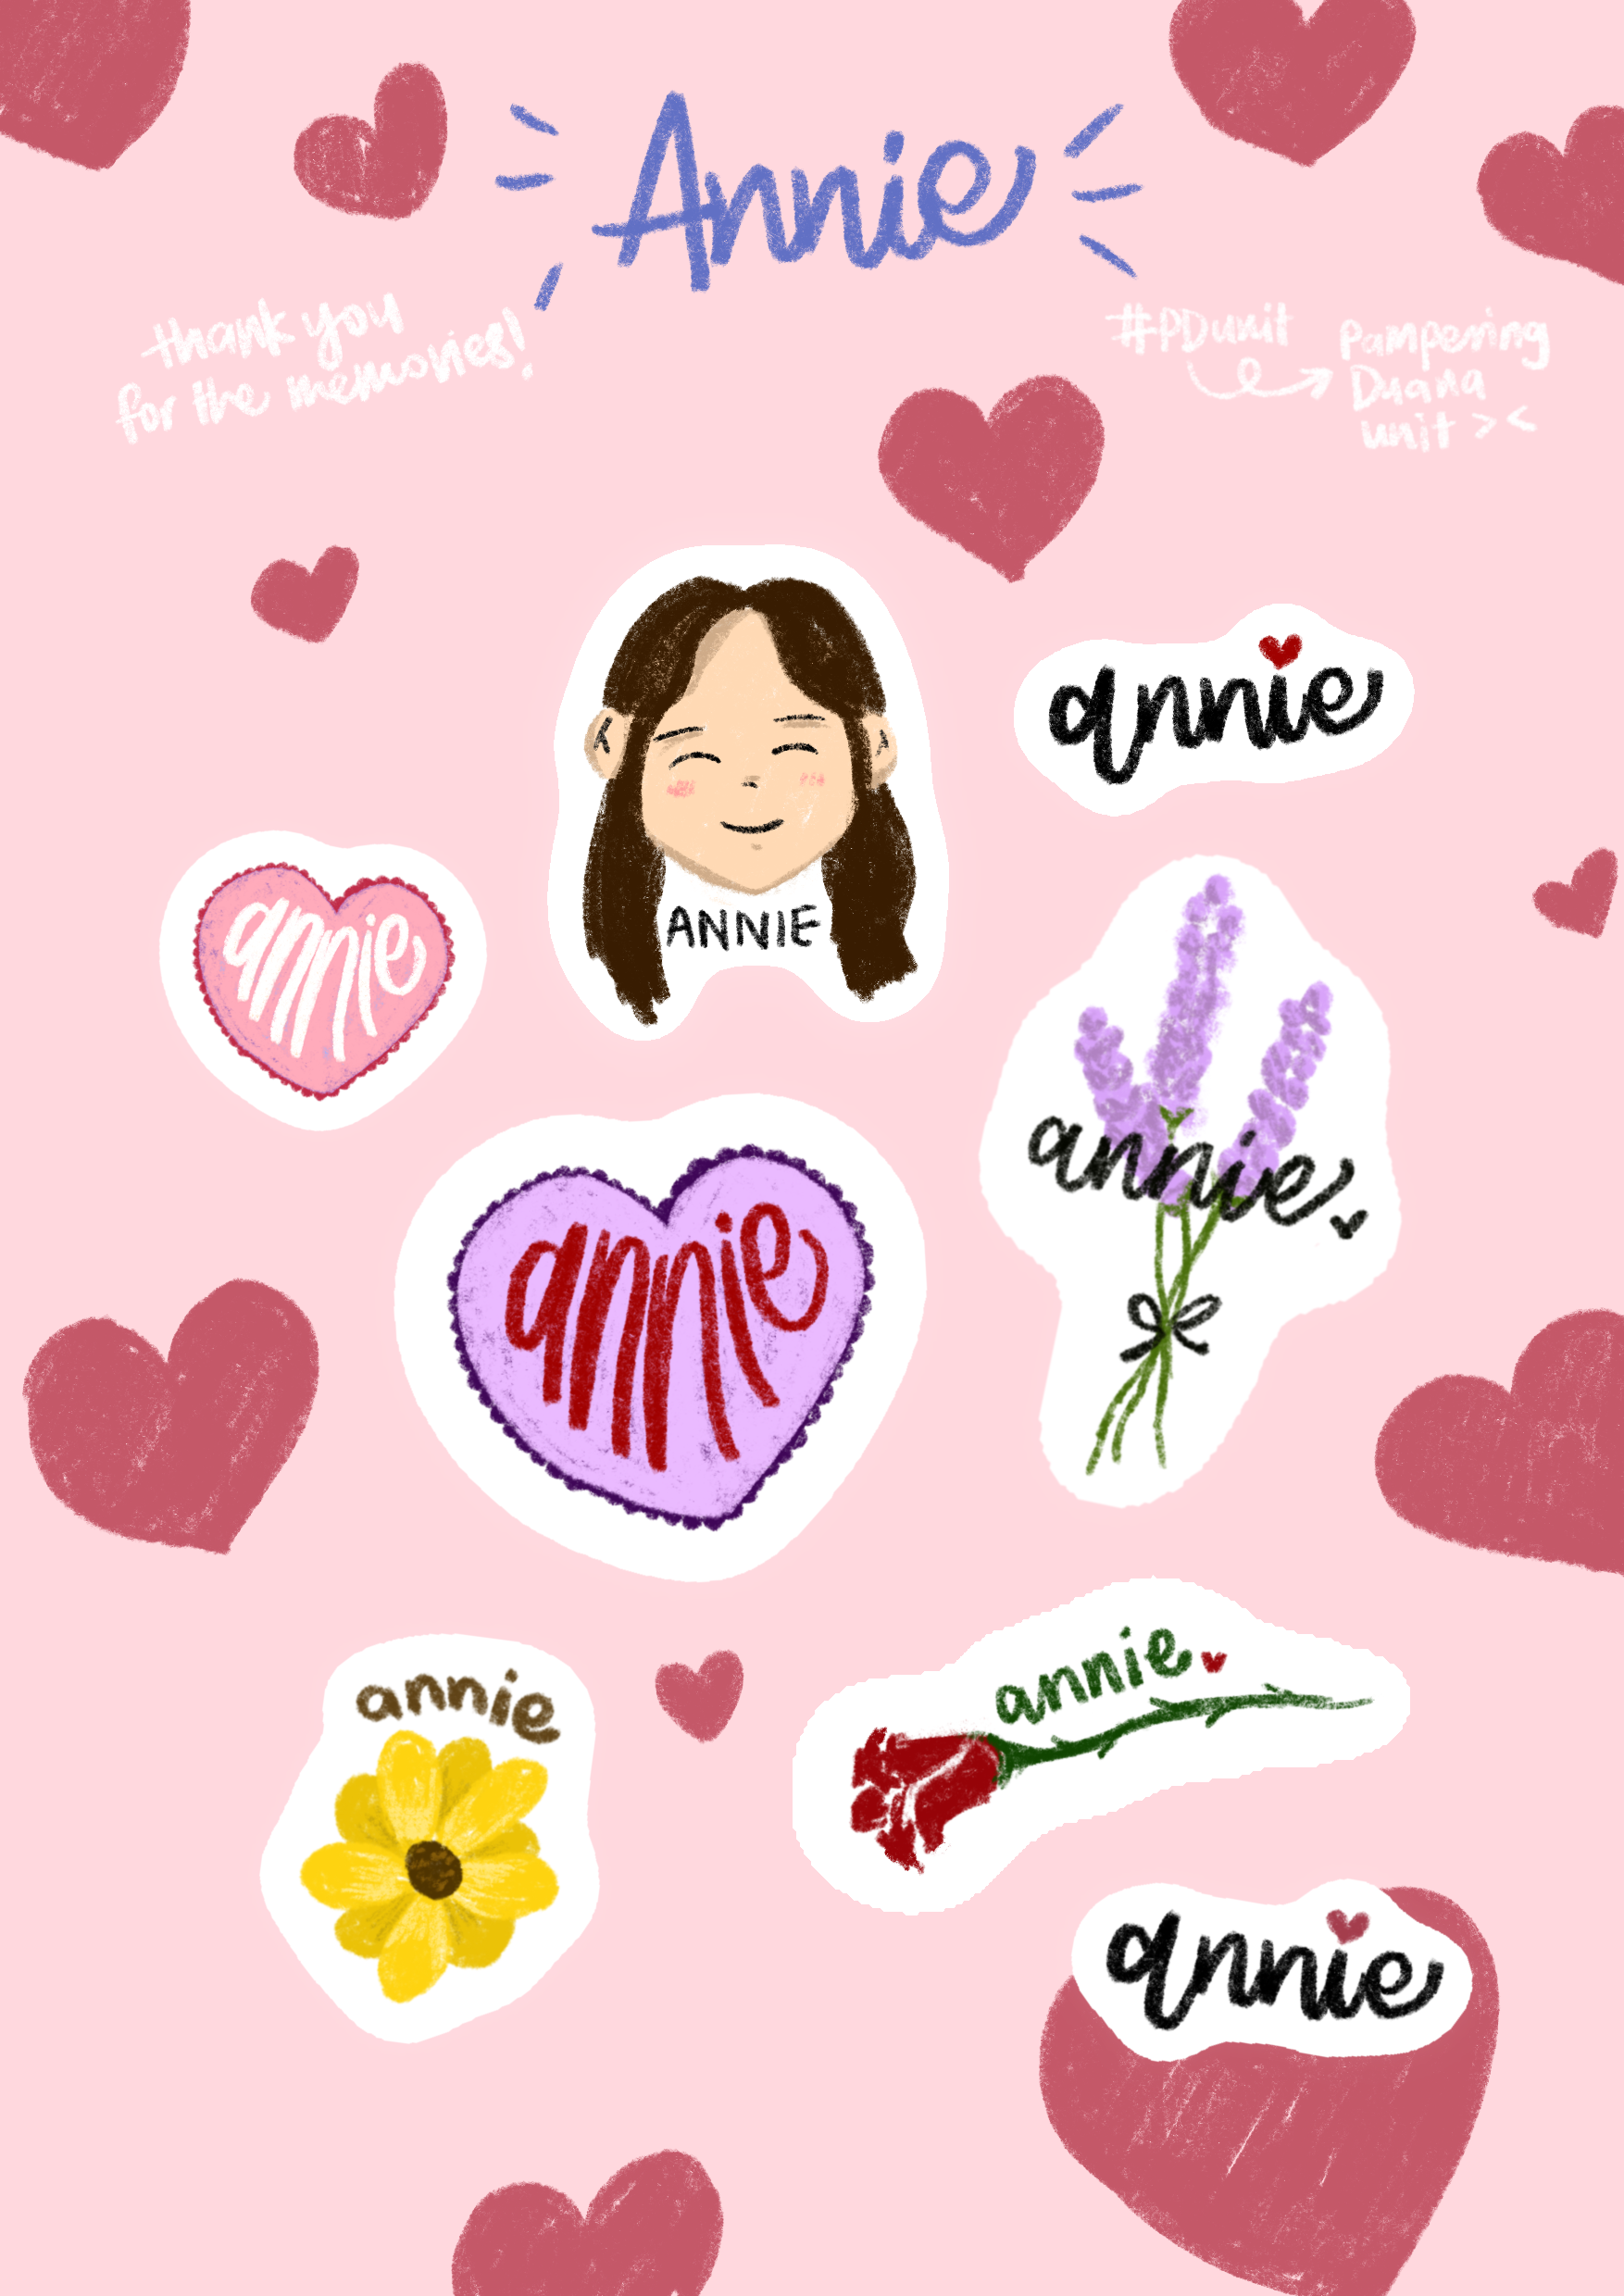 Annie
thank you
for the memories!
#PDunit
Pampering
Duana
unit > <
annie
ANNIE
annie
annie
annie
annie
annie
annie